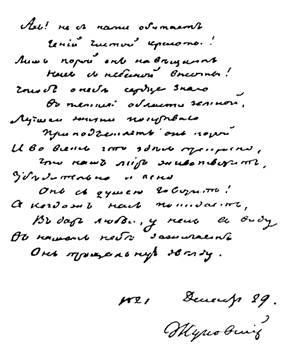 Ах! не съ нами обитаетъ
Геній чистой красоты!
Лишь порой онъ навѣщаетъ
Насъ съ небесной высоты!
Чтобъ о небѣ сердце знало
Въ темной области земной,
Лучшей жизни покрывало
Приподъемлетъ онъ порой
И во всемъ что здѣсь прекрасно,
Что нашъ міръ животворитъ,
Убѣдительно и ясно
Онъ съ душею говоритъ!
А когдажъ насъ покидаетъ,
Въ даръ любви, у насъ въ виду
Въ нашемъ небѣ зажигаетъ
Онъ прощальную звѣзду.
29.
Жуковскій